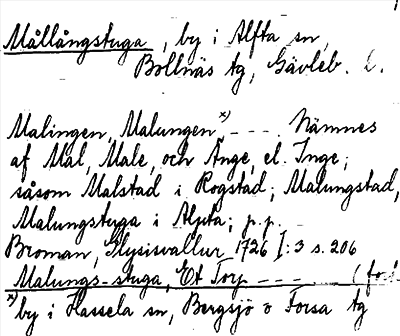 Mållångstuga, by i Alfta sn,
Bollnäs tg, Gävleb. l.
Malingen, Malungen x), - - - . Nämnes
af Mal, Male, och Ånge, el. Inge;
såsom Malstad i Rogstad; Malungstad,
Malungstuga i Alpta; p.p.
Broman, Glysisvallur 1726 I:3 s. 206
Malungs-stuga, Et Torp - - - - (forts.
x) by i Hassela sn, Bergsjö o Forsa tg